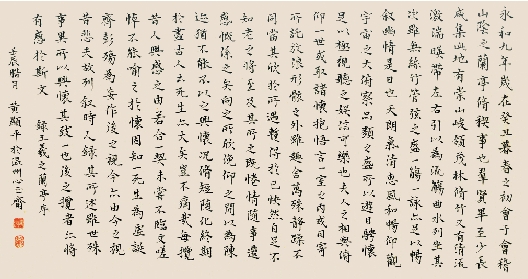 永和九年歲在癸丑暮春之初會于會稽
山陰之蘭亭脩稧事也羣賢畢至少長
咸集此地有崇山峻領茂林脩竹又有清流
激湍暎帶左右引以為流觴曲水列坐其
次雖無絲竹管弦之盛一觴一詠亦足以暢
叙幽情是日也天朗氣清惠風和暢仰觀
宇宙之大俯察品類之盛所以遊目騁懷
足以極視聽之娛信可樂也夫人之相與俯
仰一世或取諸懷抱悟言一室之內或因寄
所託放浪形骸之外雖趣舍萬殊靜躁不
同當其欣於所遇暫得於己快然自足不
知老之將至及其所之既惓情隨事遷
感慨係之矣向之所欣俛仰之間以為陳
迹猶不能不以之興懷況脩短隨化終期
於盡古人云死生亦大矣豈不痛哉每攬
昔人興感之由若合一契未嘗不臨文嗟
悼不能喻之於懷固知一死生為虛誕
齊彭殤為妄作後之視今亦由今之視
昔悲夫故列叙時人錄其所述雖世殊
事異所以興懷其致一也後之攬者亦將
有感於斯文 錄王羲之蘭亭序
壬辰臘月 黃顯平於溫州心三齋